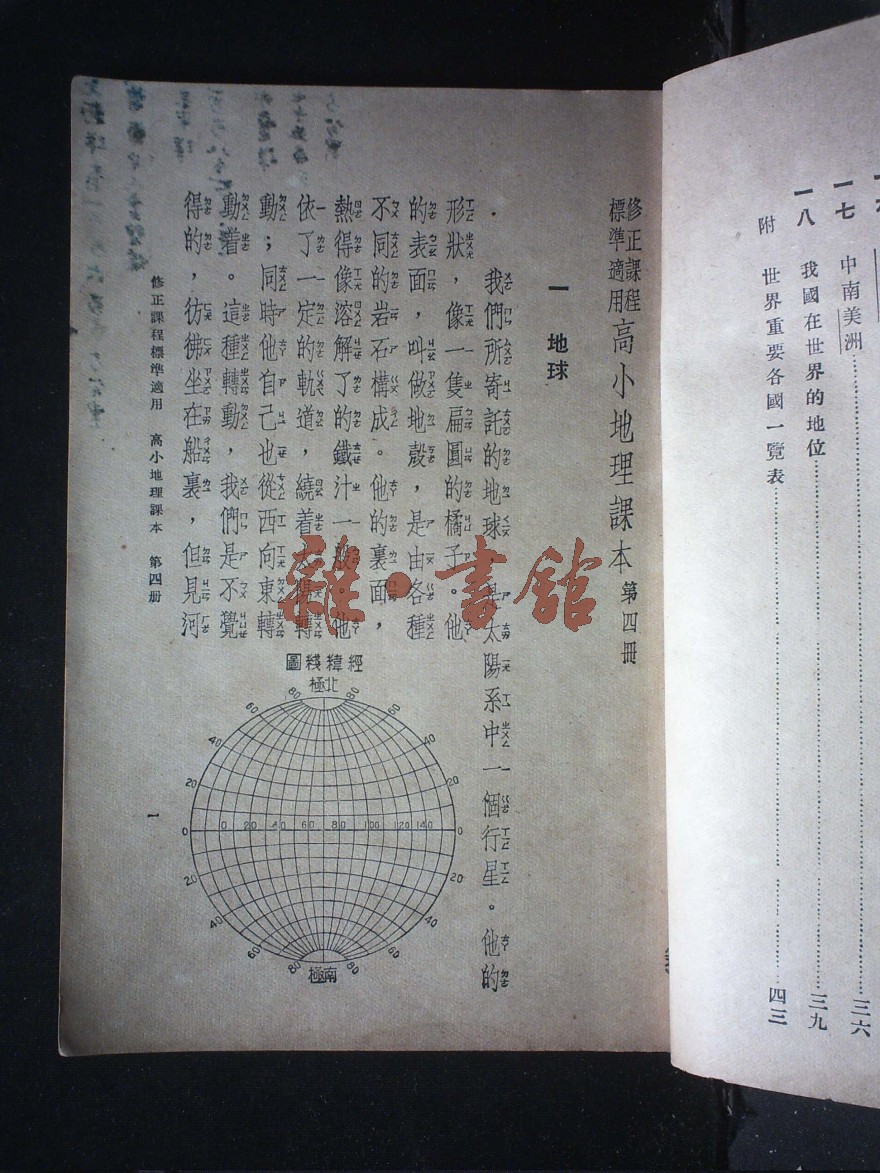 一七 中南美洲……三六
一八 我國在世界的地位……三九
附 世界重要各國一覽表……四三
修正課程標準適用 高小地理課本 第四册
一 地球
我們所寄託的地球,是太陽系中一個行星。他的
形狀,像一隻扁圓的橘子。他
的表面,叫做地殼,是由各種
不同的岩石構成。他的裏面,
熱得像溶解了的鐵汁一般。他
依了一定的軌道,繞着太陽轉
動;同時他自己也從西向東轉
動着。這種轉動,我們是不覺
得的,彷彿坐在船裏,但見河
經緯綫圖
北極
80 80
60 60
40 40
20 20
0 0 20 40 60 80 100 120 140 0
20 20
40 40
60 60
80 80
南極
修正課程標準適用 高小地理課本 第四册
一
雜·書館